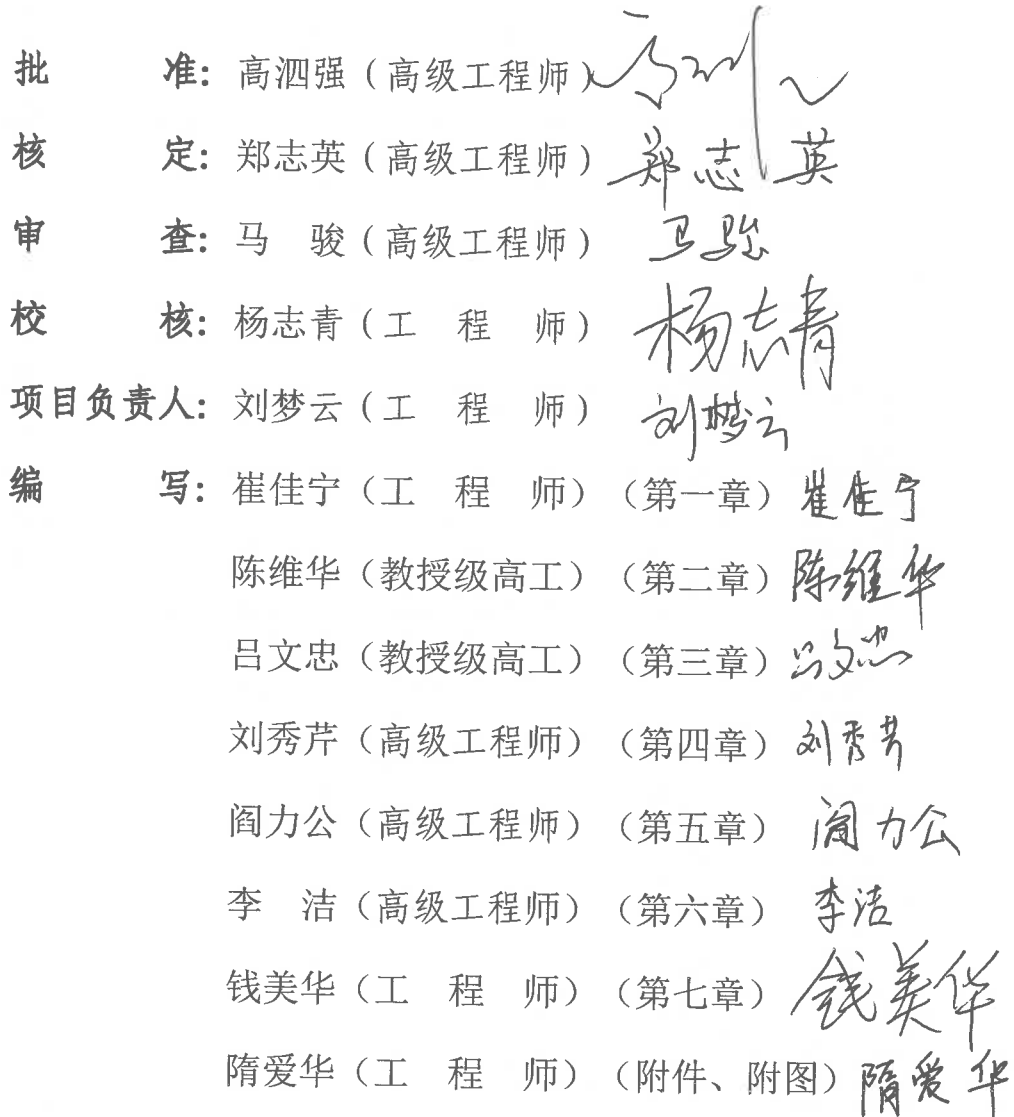 批 准: 高泗强（高级工程师）
核 定: 郑志英（高级工程师） 郑志英
审 查: 马 骏（高级工程师） 马骏
校 核: 杨志青（工 程 师） 杨志青
项目负责人: 刘梦云（工 程 师） 刘梦云
编 写: 崔佳宁（工 程 师）（第一章） 崔佳宁
陈维华（教授级高工）（第二章） 陈维华
吕文忠（教授级高工）（第三章） 吕文忠
刘秀芹（高级工程师）（第四章） 刘秀芹
阎力公（高级工程师）（第五章） 阎力公
李 洁（高级工程师）（第六章） 李洁
钱美华（工 程 师）（第七章） 钱美华
隋爱华（工 程 师）（附件、附图） 隋爱华